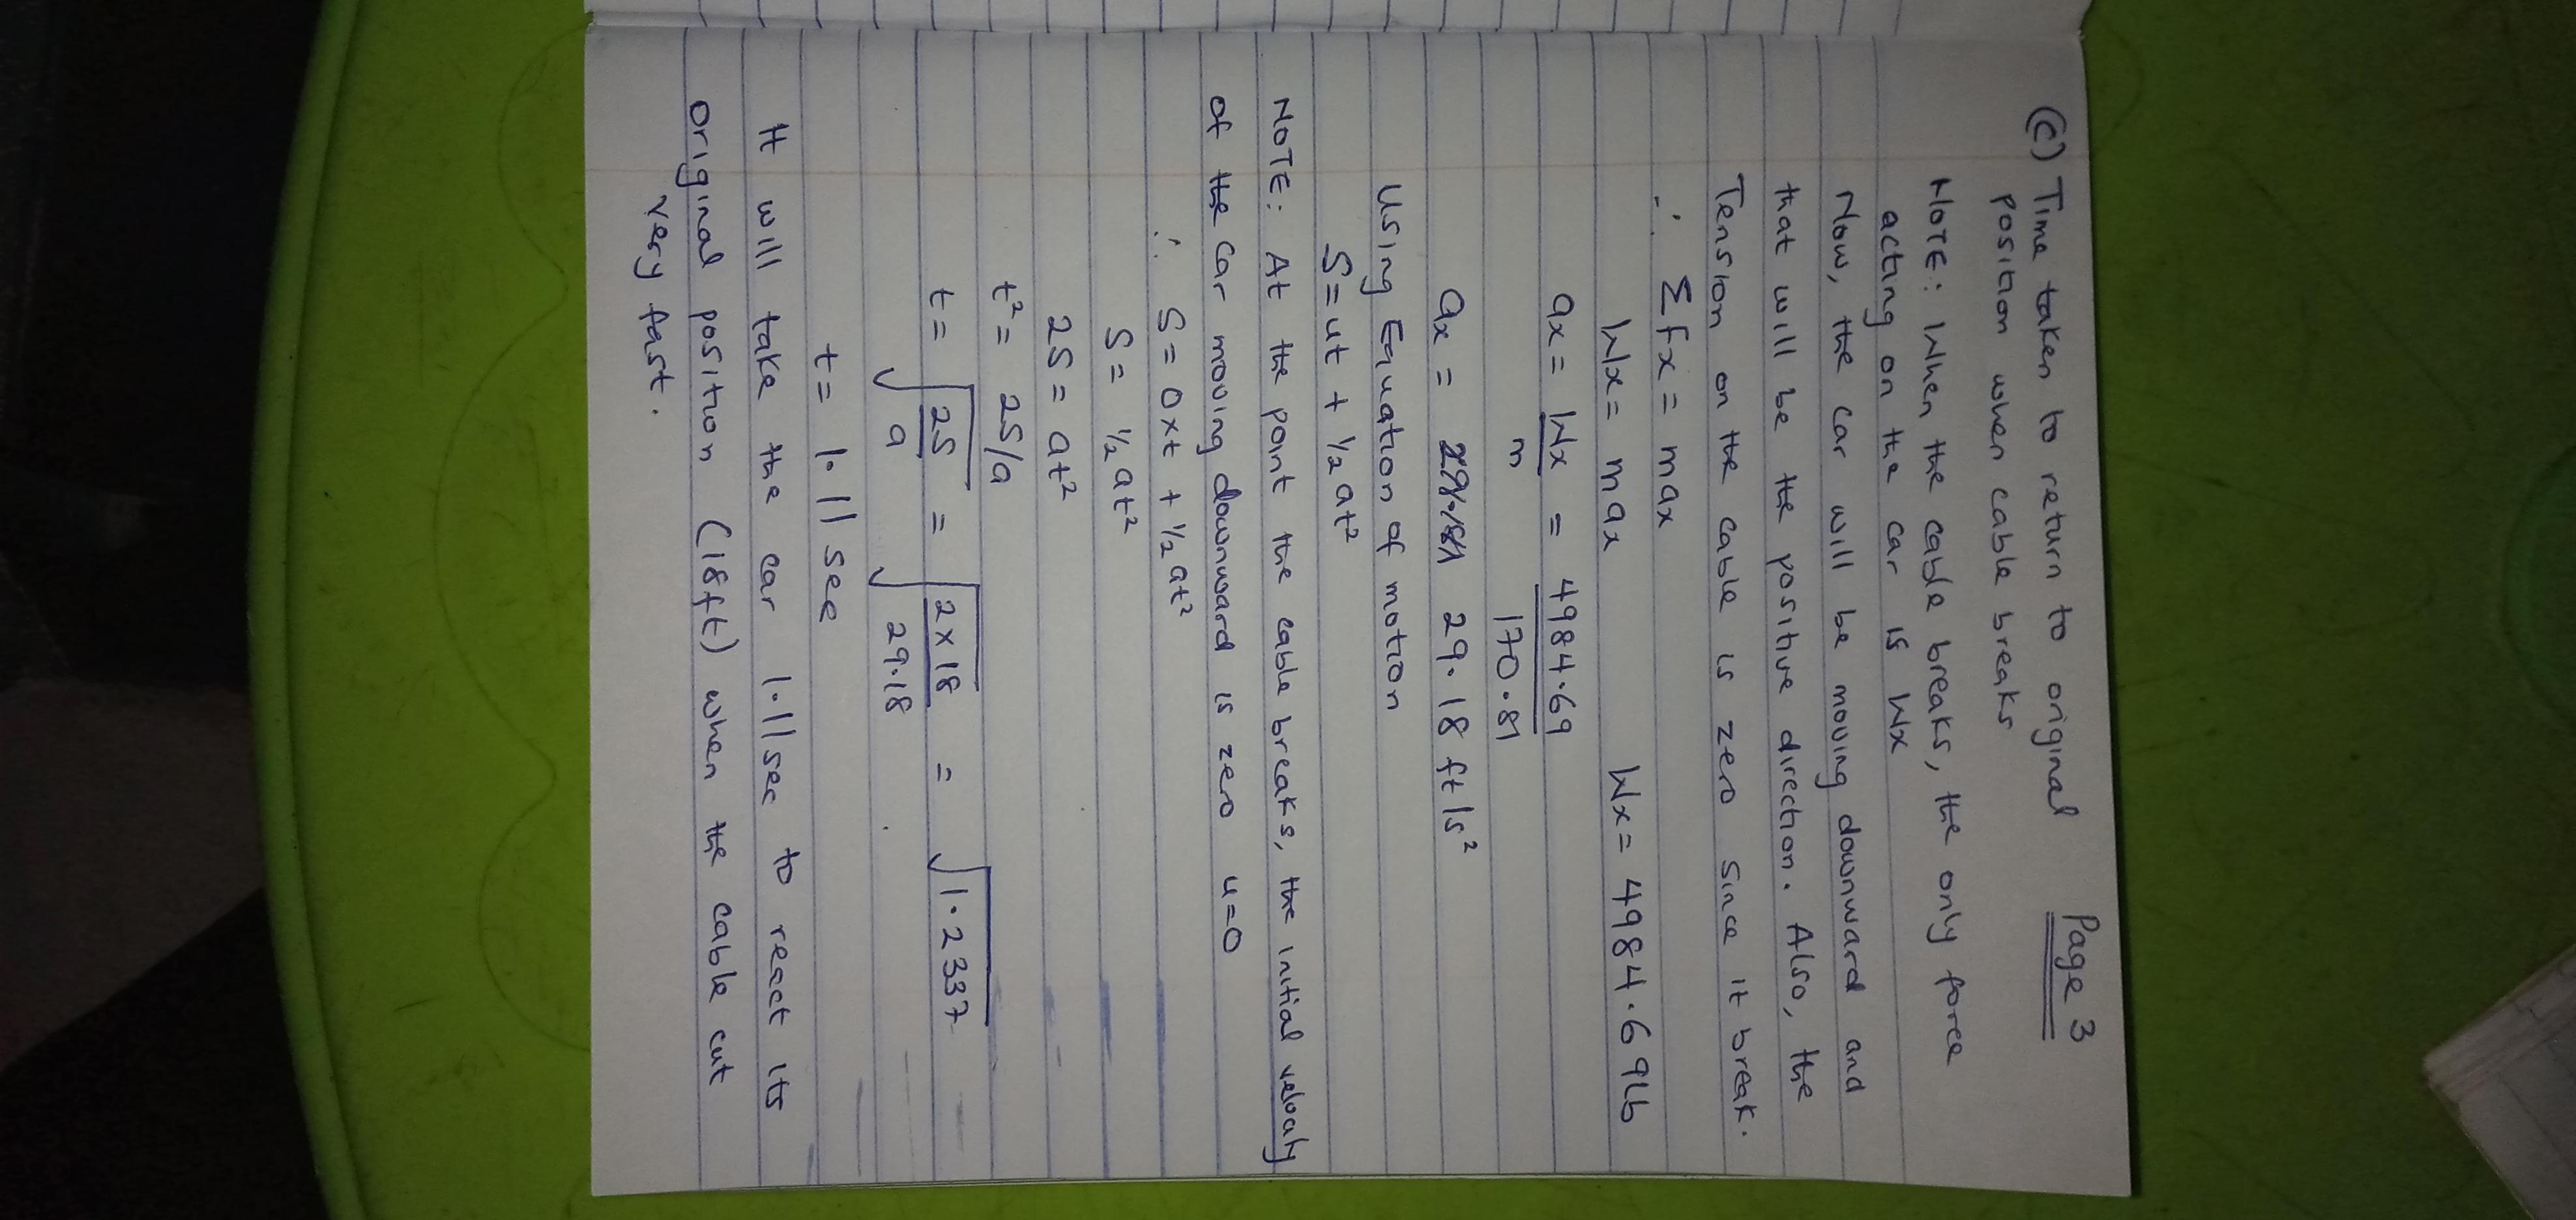 Page 3
(c) Time taken to return to original
position when cable breaks
NOTE: When the cable breaks, the only force
acting on the car is Wx
Now, the car will be moving downward and
that will be the positive direction. Also, the
Tension on the cable is zero since it break.
∴ Σfx = max
Wx = max Wx = 4984.69lb
ax = Wx/m = 4984.69/170.81
ax = 29.18 ft/s²
Using Equation of motion
S = ut + ½at²
NOTE: At the point the cable breaks, the initial velocity
of the car moving downward is zero u=0
∴ S = 0xt + ½at²
S = ½at²
2S = at²
t² = 2S/a
t = √(2S/a) = √(2×18/29.18) = √1.2337
t = 1.11 sec
It will take the car 1.11sec to react its
original position (18ft) when the cable cut
very fast.